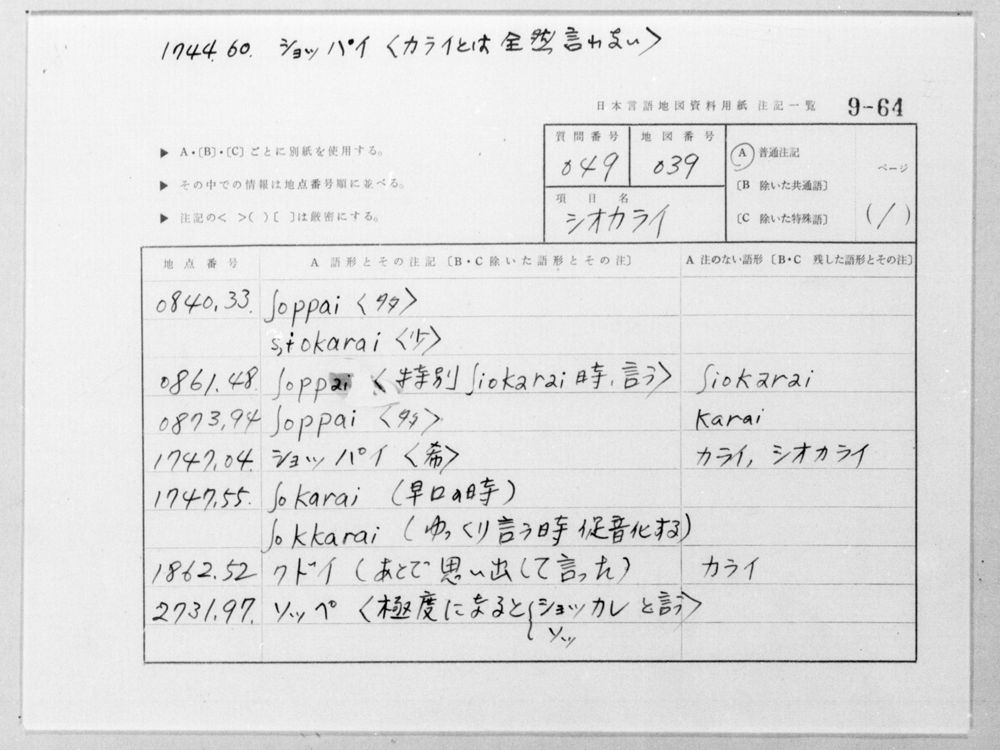 1744.60. ショッパイ〈カライとは全然言わない〉
日本言語地図資料用紙 注記一覧 9-64
▶ A・〔B〕・〔C〕ごとに別紙を使用する。
▶ その中での情報は地点番号順に並べる。
▶ 注記の< >( )〔 〕は厳密にする。
質問番号 049
地図番号 039
項目名 シオカライ
A 普通注記
〔B 除いた共通語〕
〔C 除いた特殊語〕
ページ
(1)
地点番号 A 語形とその注記〔B・C除いた語形とその注〕 A 注のない語形〔B・C 残した語形とその注〕
0840.33. ʃoppai〈多〉
okarai〈少〉
0861.48. ʃoppai〈特別ʃiokarai時、言う〉 ʃiokarai
0873.94 ʃoppai〈多〉 karai
1747.04. ショッパイ〈希〉 カライ, シオカライ
1747.55. ʃokarai (早口の時)
ʃokkarai (ゆっくり言う時促音化する)
1862.52 クドイ(あとで思い出して言った) カライ
2731.97. ソッペ〈極度になると{ショッカレと言う〉
ソッ